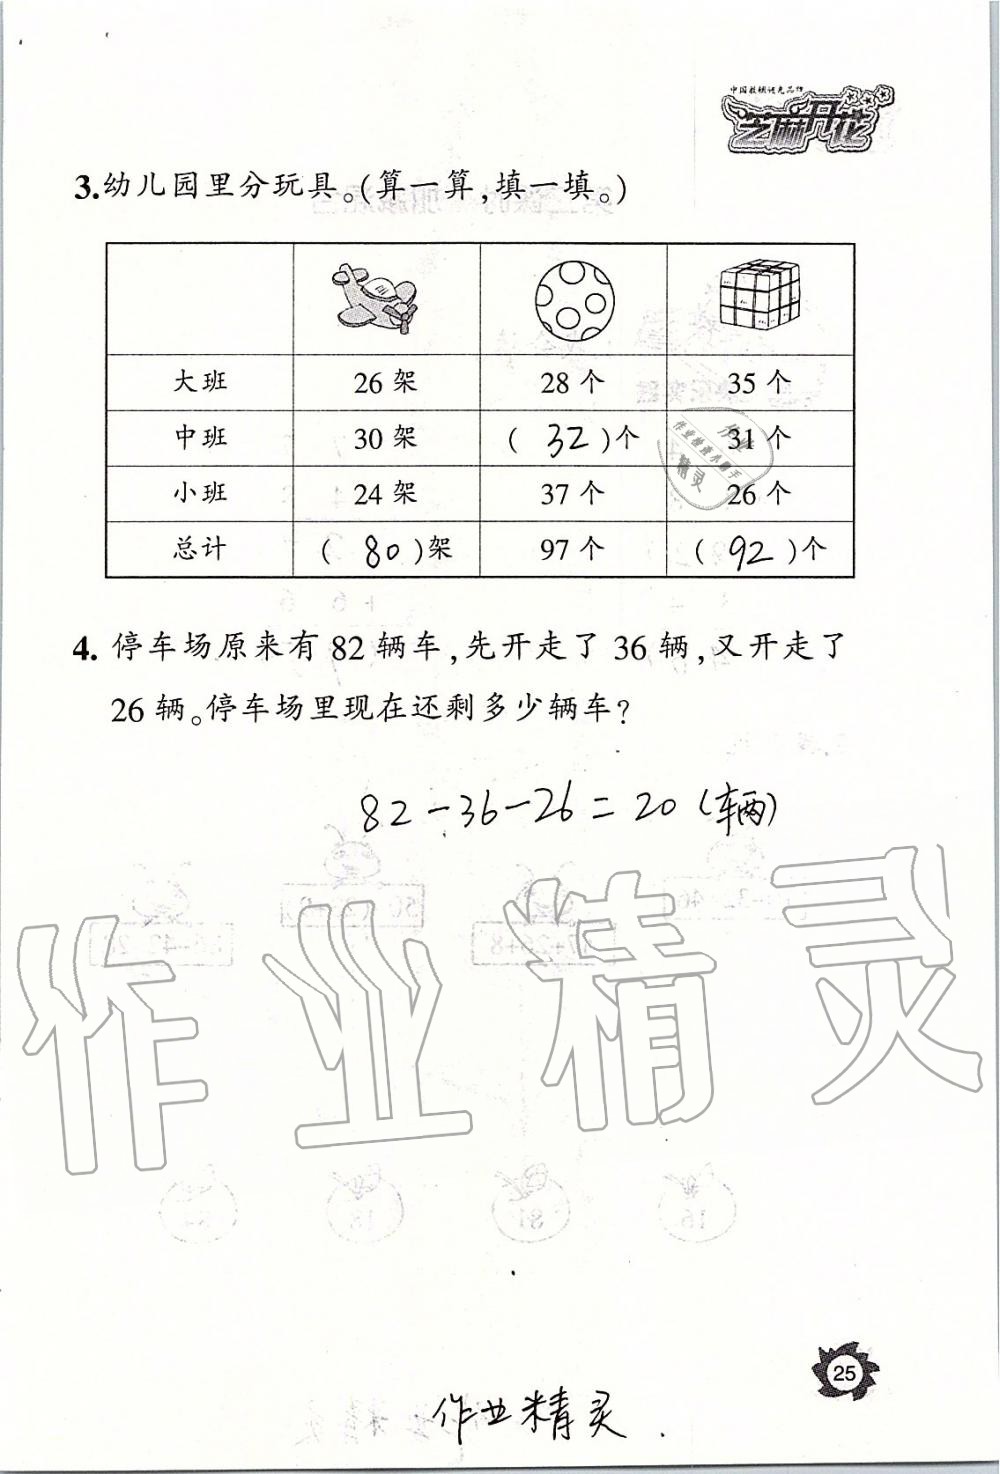 中国教辅领先品牌
芝麻开花
3.幼儿园里分玩具。(算一算,填一填。)
大班 26 架 28 个 35 个
中班 30 架 ( 32 )个 31 个
小班 24 架 37 个 26 个
总计 ( 80 )架 97 个 ( 92 )个
作业
作业检查小助手
精灵
4. 停车场原来有 82 辆车,先开走了 36 辆,又开走了
26 辆。停车场里现在还剩多少辆车?
82-36-26=20(辆)
作业精灵
25
作业精灵.